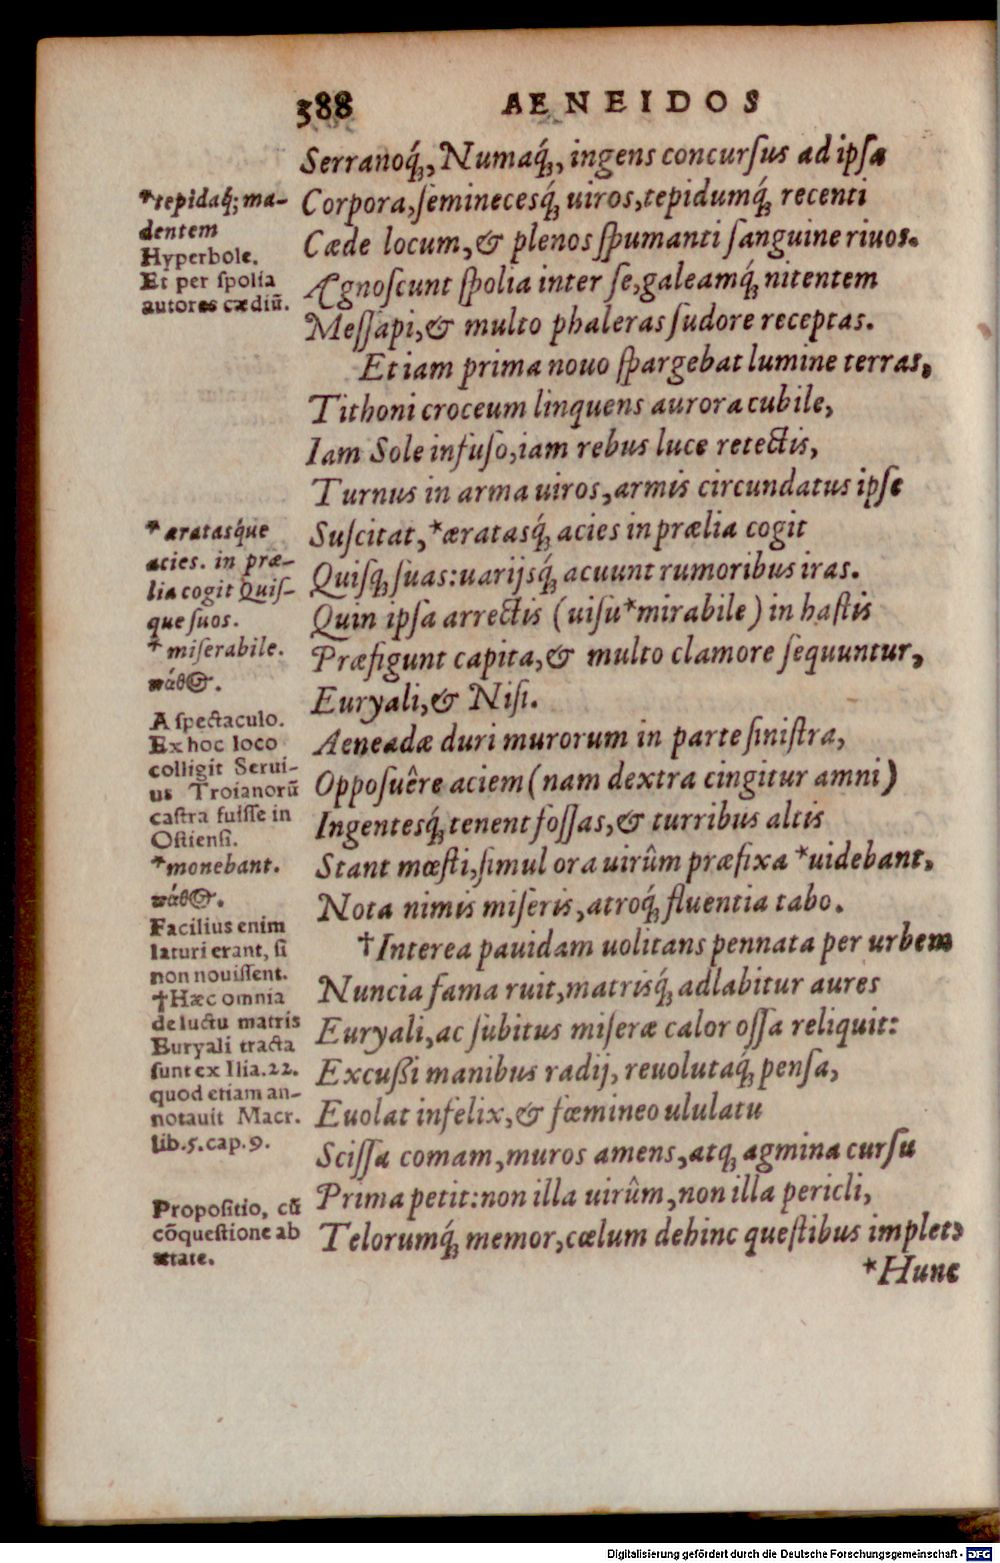 388 AENEIDOS
Serranoq́;, Numaq́;, ingens concursus ad ipsa
Corpora, seminecesq́; uiros, tepidumq́; recenti
Cæde locum, & plenos spumanti sanguine riuos.
Ægnoscunt spolia inter se, galeamq́; nitentem
Messapi, & multo phaleras sudore receptas.
Et iam prima nouo spargebat lumine terras,
Tithoni croceum linquens aurora cubile,
Iam Sole infuso, iam rebus luce retectis,
Turnus in arma uiros, armis circundatus ipse
Suscitat, *æratasq́; acies in prælia cogit
Quisq; suas: uarijsq́; acuunt rumoribus iras.
Quin ipsa arrectis (uisu *mirabile) in hastis
Præfigunt capita, & multo clamore sequuntur,
Euryali, & Nisi.
Aeneadæ duri murorum in parte sinistra,
Opposuêre aciem (nam dextra cingitur amni)
Ingentesq́; tenent fossas, & turribus altis
Stant mœsti, simul ora uirûm præfixa *uidebant,
Nota nimis miseris, atroq́; fluentia tabo.
†Interea pauidam uolitans pennata per urbem
Nuncia fama ruit, matrisq́; adlabitur aures
Euryali, ac subitus miseræ calor ossa reliquit:
Excußi manibus radij, reuolutaq́; pensa,
Euolat infelix, & fœmineo ululatu
Scissa comam, muros amens, atq; agmina cursu
Prima petit: non illa uirûm, non illa pericli,
Telorumq́; memor, cœlum dehinc questibus implet,
*Hunc
*tepidaq́; ma-
dentem
Hyperbole.
Et per spolia
autores cædiũ.
*aratasq́ue
acies. in præ-
lia cogit Quis-
que suos.
*miserabile.
πάθος.
A spectaculo.
Ex hoc loco
colligit Serui-
us Troianorũ
castra fuisse in
Ostiensi.
*monebant.
πάθος.
Facilius enim
laturi erant, si
non nouissent.
†Hæc omnia
de luctu matris
Euryali tracta
sunt ex Ilia.22.
quod etiam an-
notauit Macr.
lib.5.cap.9.
Propositio, cũ
cõquestione ab
ætate.
Digitalisierung gefördert durch die Deutsche Forschungsgemeinschaft - DFG